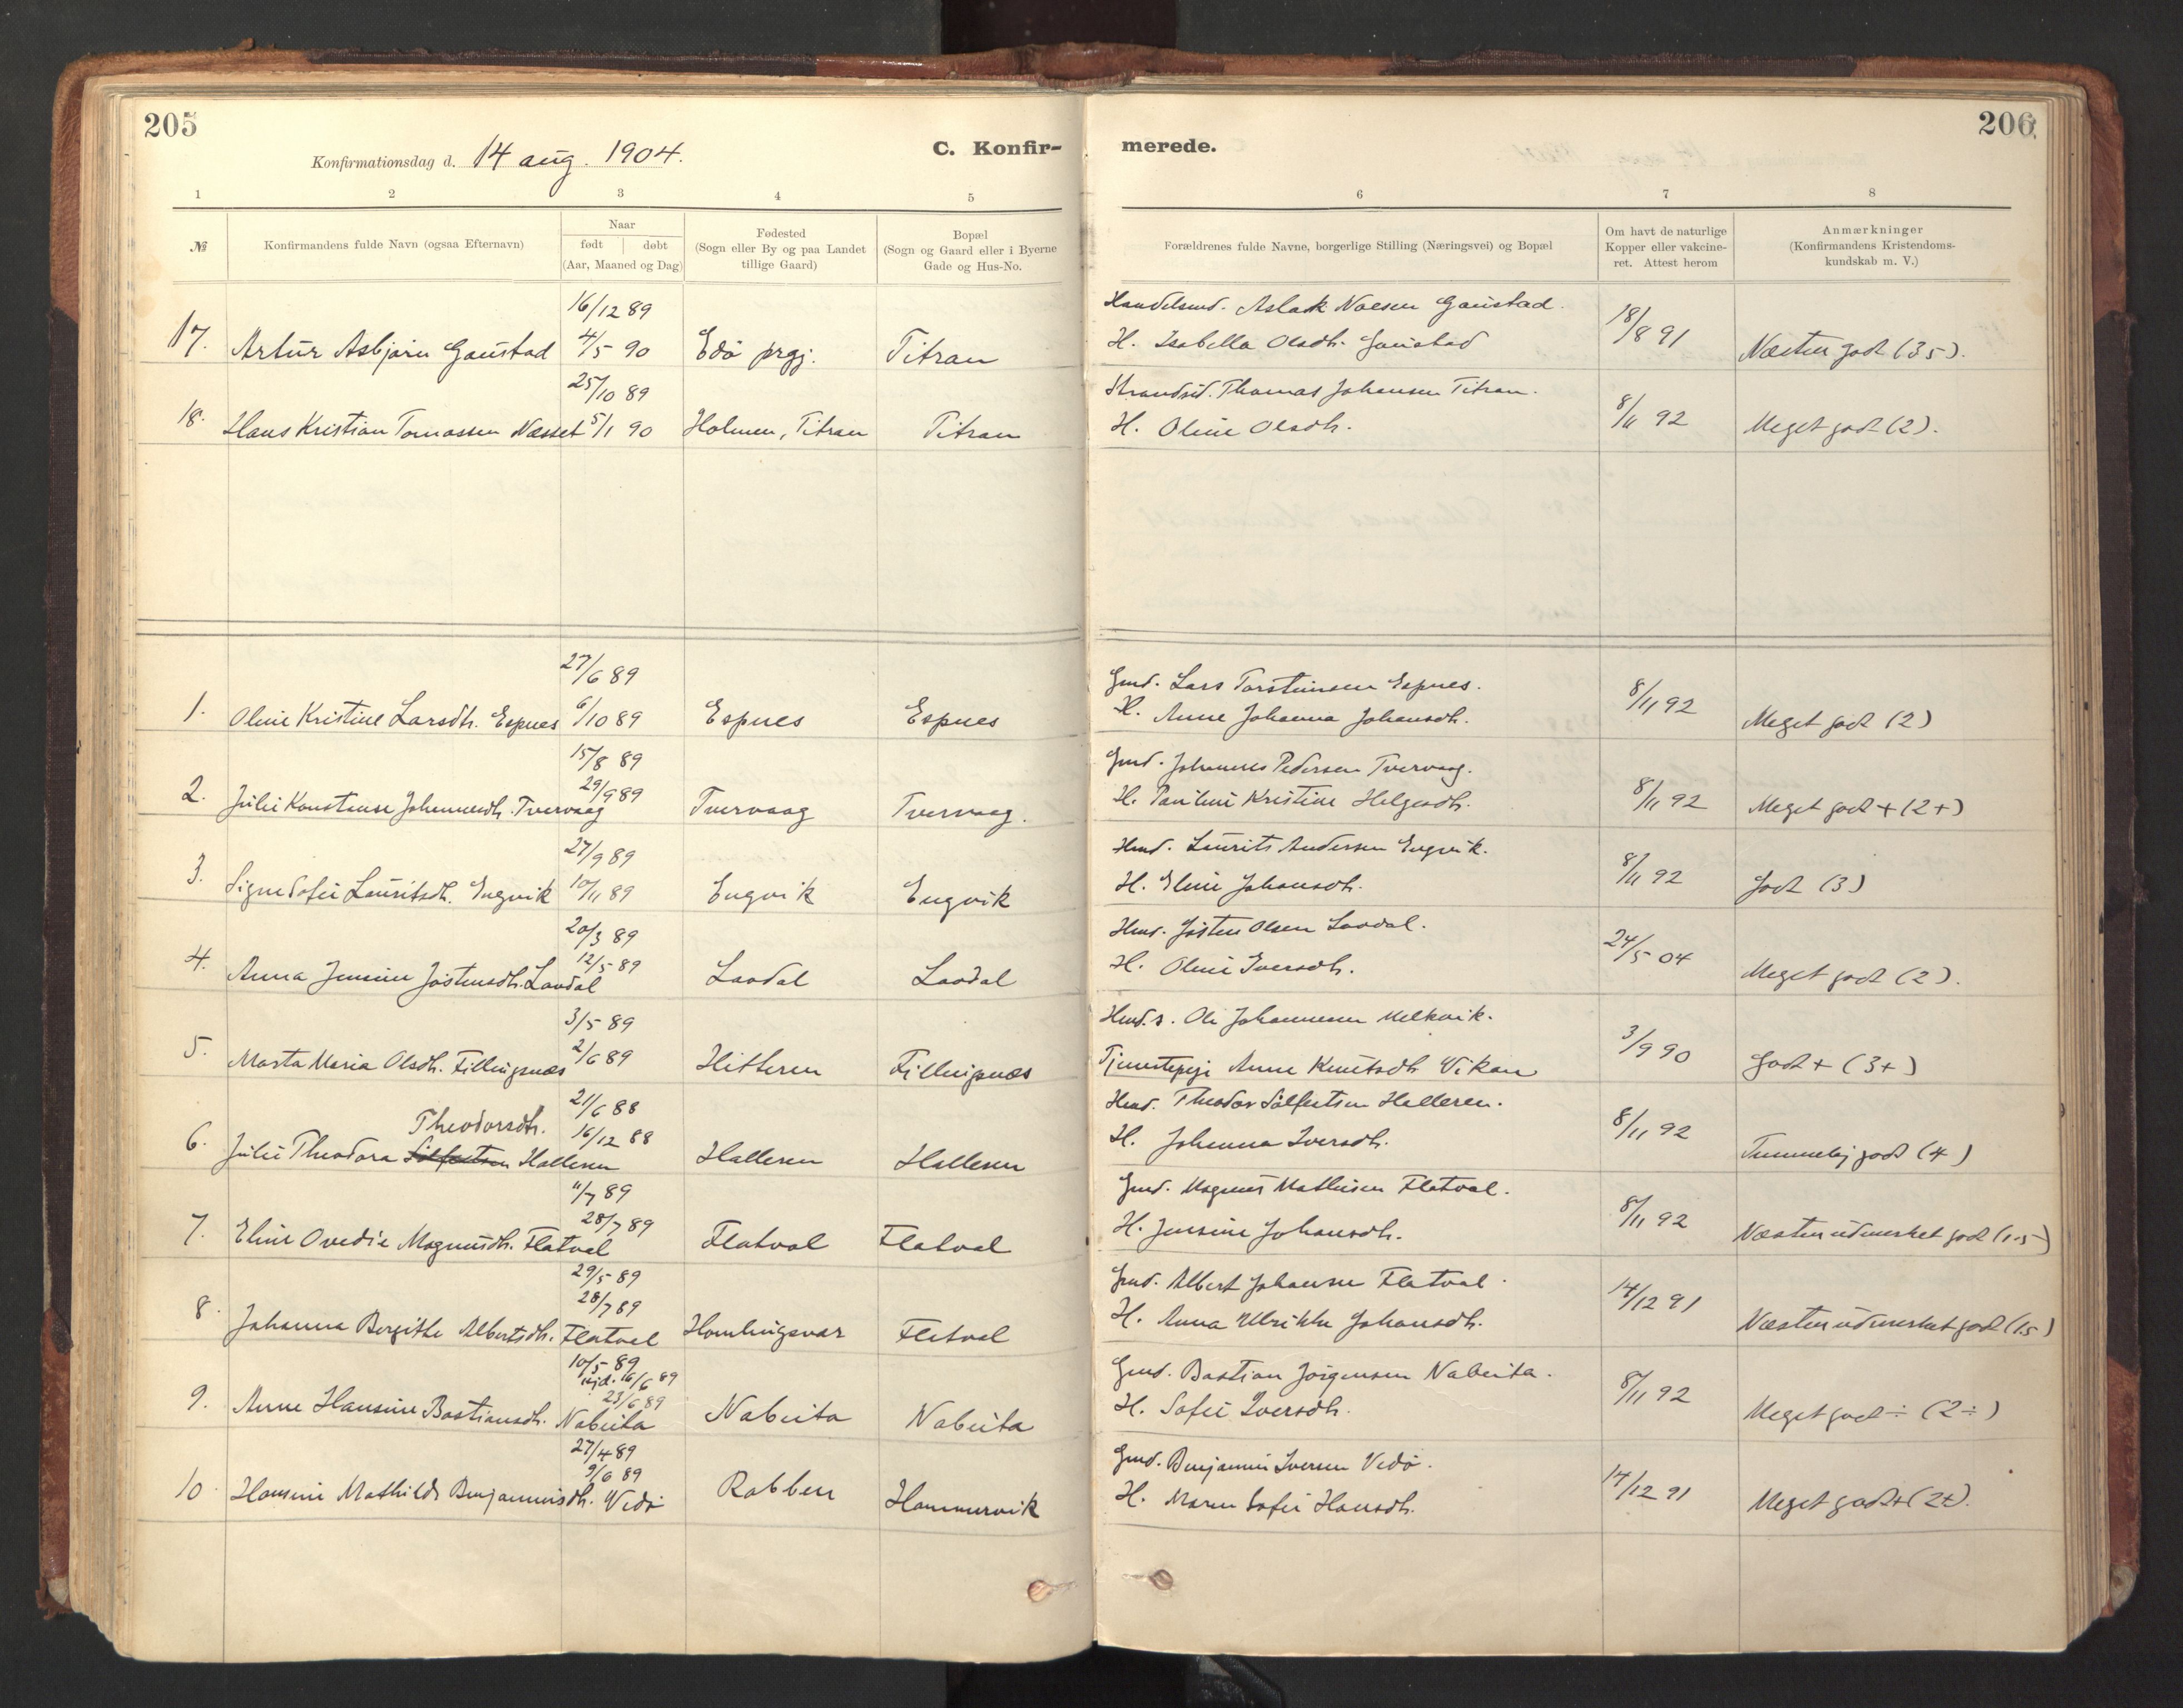 205
206
Konfirmationsdag d. 14 aug. 1904.
C. Konfir-
merede.
1 2 3 4 5 6 7 8
№
Konfirmandens fulde Navn (ogsaa Efternavn)
Naar
født døbt
(Aar, Maaned og Dag)
Fødested
(Sogn eller By og paa Landet
tillige Gaard)
Bopæl
(Sogn og Gaard eller i Byerne
Gade og Hus-No.
Forældrenes fulde Navne, borgerlige Stilling (Næringsvei) og Bopæl
Om havt de naturlige
Kopper eller vakcine-
ret. Attest herom
Anmærkninger
(Konfirmandens Kristendoms-
kundskab m. V.)
16/12 89 Handelsmd. Aslak Noesen Gaustad.
17. Artur Asbjørn Gaustad 4/5 90 Edø prgj. Titran H. Isabella Olsdtr. Gaustad 18/8 91 Næsten godt (35).
25/10 89 Strandsid. Thomas Johansen Titran.
18. Hans Kristian Tomassen Næsset 5/1 90 Holmen, Titran Titran H. Oline Olsdtr. 8/11 92 Meget godt (2).
27/6 89 Gmd. Lars Torsteinsen Espnes.
1. Oline Kristine Larsdtr. Espnes 6/10 89 Espnes Espnes H. Anne Johanna Johansdtr. 8/11 92 Meget godt (2)
15/8 89 Gmd. Johannes Pedersen Tvervaag.
2. Julie Konstanse Johannesdtr. Tvervaag 29/9 89 Tvervaag Tvervaag. H. Pauline Kristine Helgesdtr. 8/11 92 Meget godt + (2+)
27/9 89 Hmd. Laurits Andersen Engvik.
3. Signe Sofie Lauritsdtr. Engvik 10/11 89 Engvik Engvik H. Eline Johansdtr. 8/11 92 Godt (3)
20/3 89 Hmd. Josten Olsen Laadal.
4. Anna Jensine Jostensdtr. Laadal 12/5 89 Laadal Laadal H. Oline Iversdtr. 24/5 04 Meget godt (2).
3/5 89 Hmd. s. Ole Johannesen Melkvik.
5. Marta Maria Olsdtr. Fillingsnæs 2/6 89 Hitteren Fillingsnæs Tjenestepige Anne Knutsdtr Vikan 3/9 90 Godt + (3+)
Theodorsdtr. 21/6 88 Hmd. Theodor Sølfestsen Halleren.
6. Julie Theodora Sølfestsen Halleren 16/12 88 Halleren Halleren H. Johanna Iversdtr. 8/11 92 Temmelig godt (4)
11/7 89 Gmd. Magnus Mathisen Flatval.
7. Eline Ovedie Magnusdtr. Flatval 28/7 89 Flatval Flatval H. Jensine Johansdtr. 8/11 92 Næsten udmerket godt (1.5)
29/5 89 Gmd. Albert Johansen Flatval.
8. Johanna Bergitte Albertsdtr. Flatval 28/7 89 Homlingsvær Flatval H. Anna Ulrikke Johansdtr. 14/12 91 Næsten udmerket godt (15)
10/5 89 Gmd. Bastian Jørgensen Nabeita.
hjd. 16/6 89
9. Anne Hansine Bastiansdtr. Nabeita 23/6 89 Nabeita Nabeita H. Sofie Iversdtr. 8/11 92 Meget godt ÷ (2÷)
27/4 89 Gmd. Benjamin Iversen Vedø.
10. Hansine Mathilde Benjaminsdtr. Vedø 9/6 89 Rabben Hammervik H. Maren Sofie Hansdtr. 14/12 91 Meget godt + (2+).